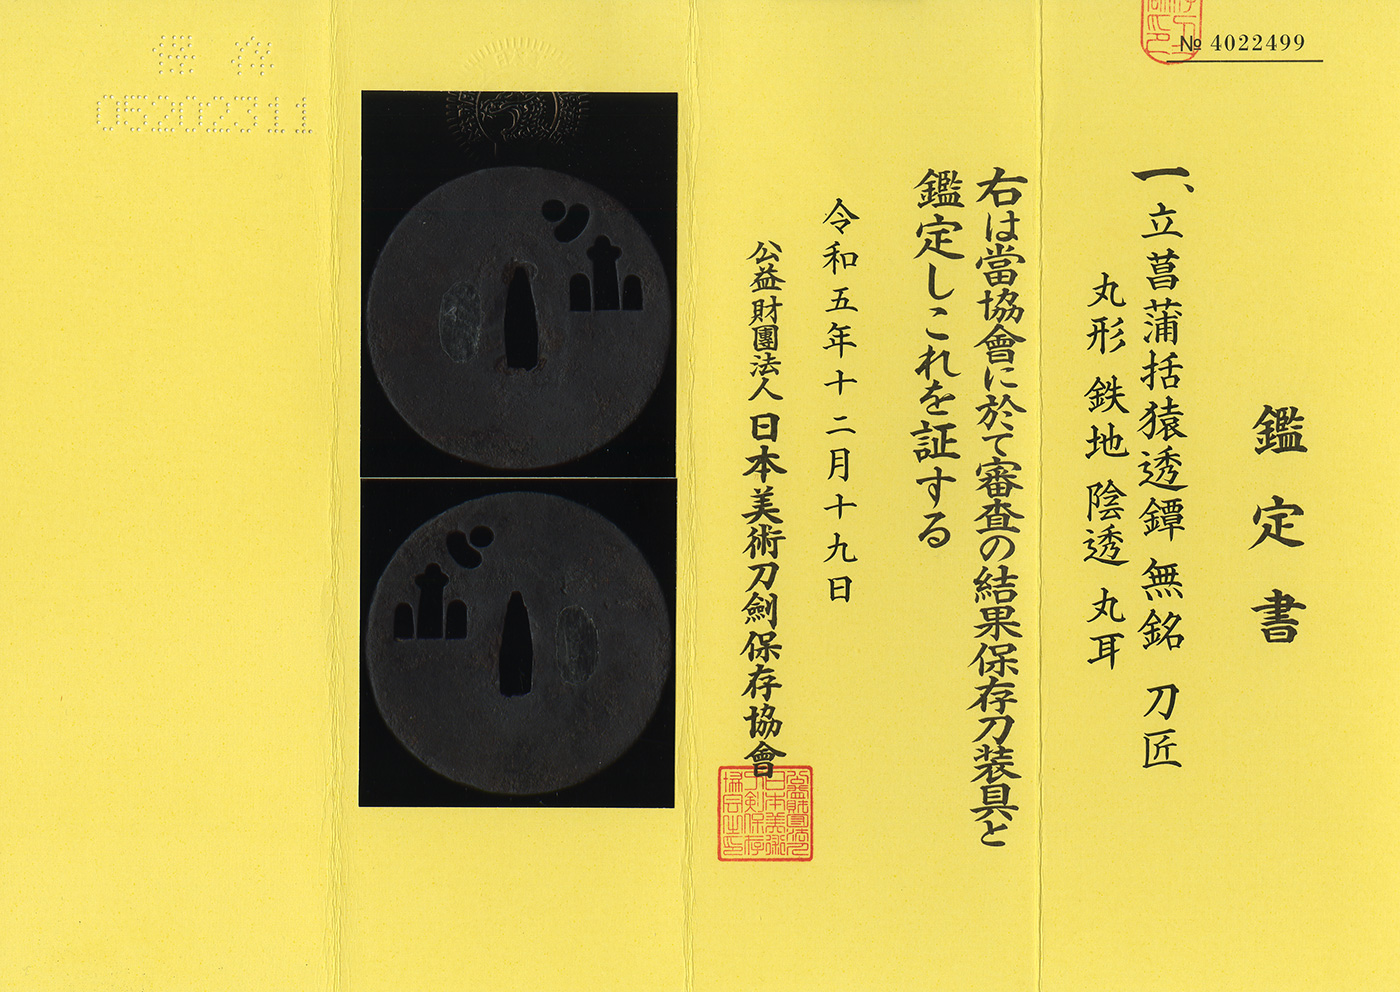 № 4022499
鑑定書
一、立菖蒲括猿透鐔 無銘 刀匠
丸形 鉄地 陰透 丸耳
右は當協會に於て審査の結果保存刀装具と
鑑定しこれを証する
令和五年十二月十九日
公益財團法人 日本美術刀劍保存協會
公益財團法人
日本美術
刀剣保存
協會之印
保存
05202311